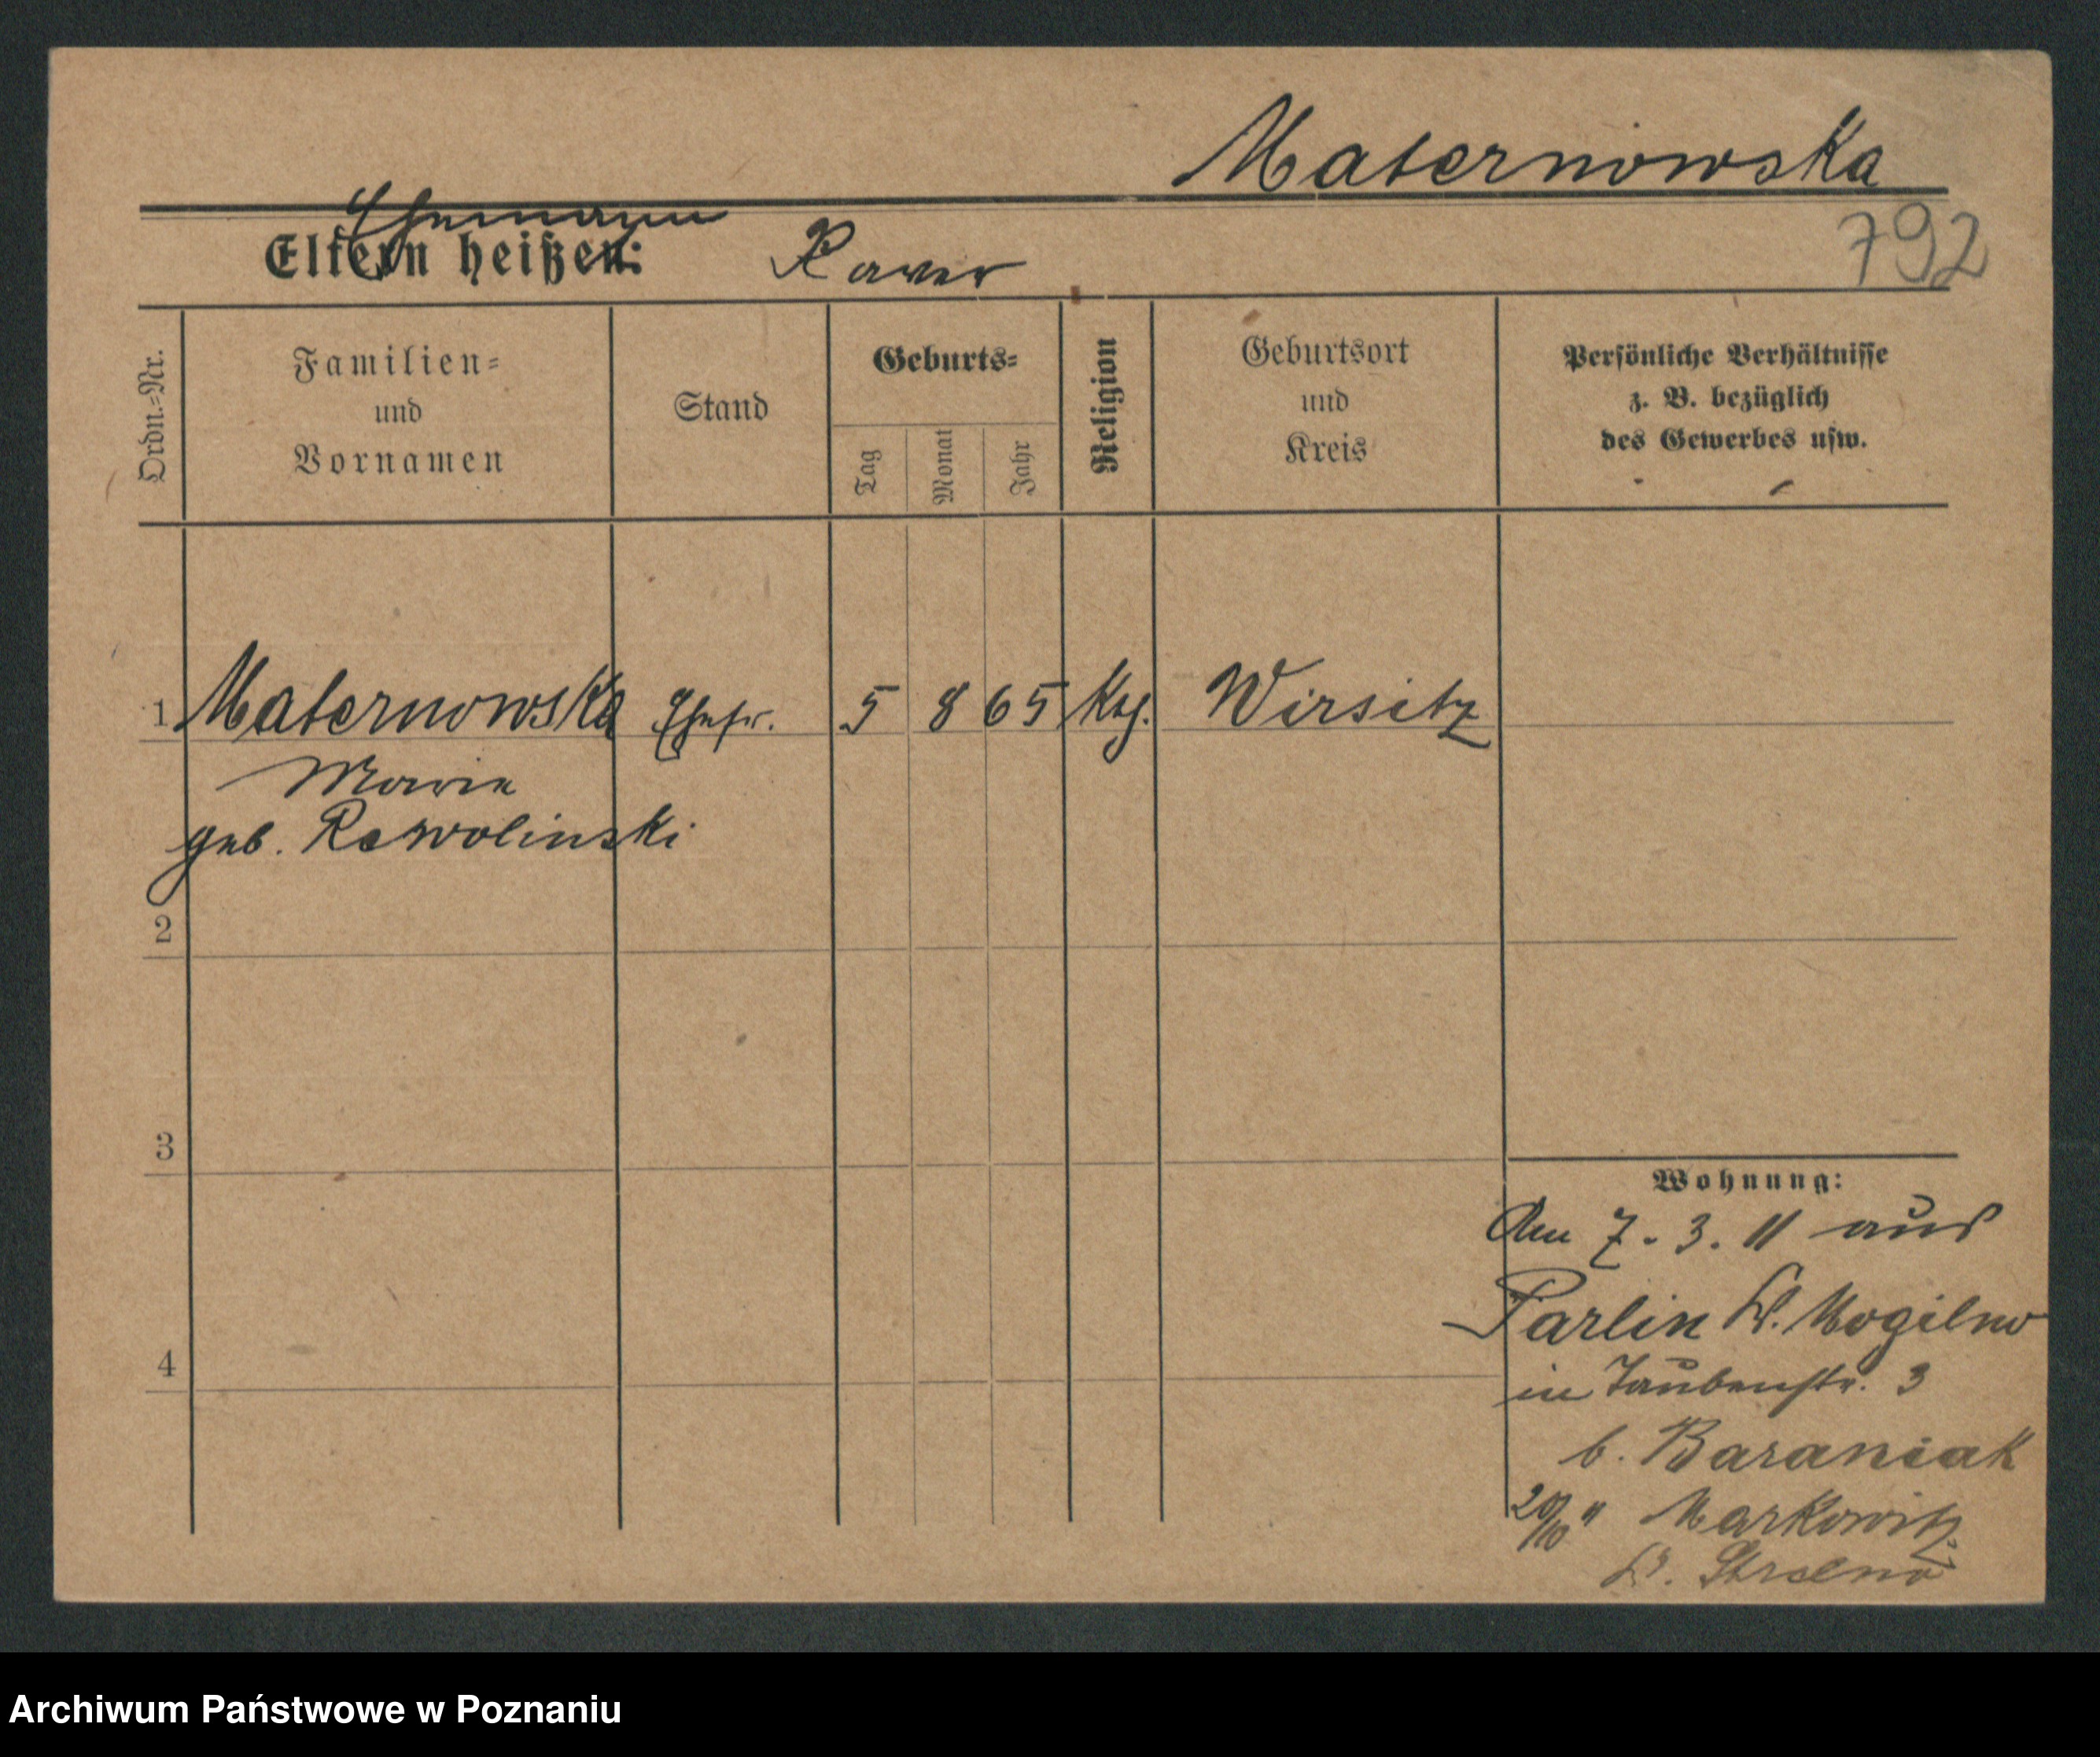 Maternowska
Ehemann
Eltern heißen:
792
Ordn.=Nr.
Familien=
und
Vornamen
Stand
Geburts=
Tag
Monat
Jahr
Religion
Geburtsort
und
Kreis
Persönliche Verhältnisse
z. B. bezüglich
des Gewerbes usw.
1 Maternowska Ehefr. 5 8 65 Wirsitz
Maria
geb. Rawolinski
2
3
4
Wohnung:
Am 7. 3. 11 aus
Parlin Kr. Mogilno
in Taubenstr. 3
b. Baraniak
20/10 " Markowitz
Kr. Strelno
Archiwum Państwowe w Poznaniu